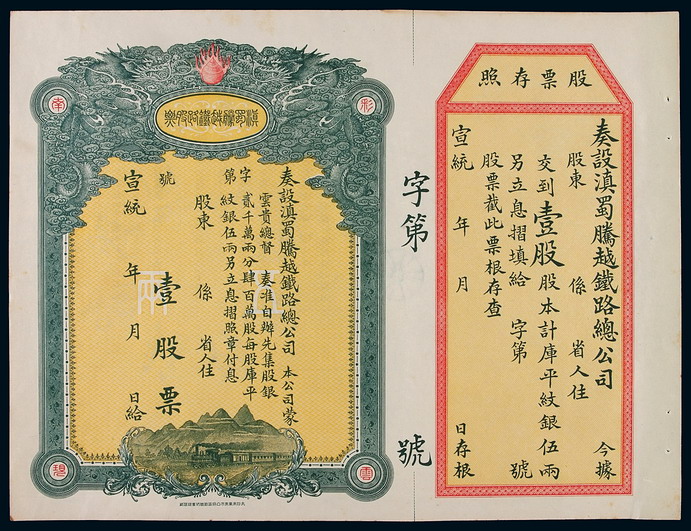 股票存照
奏設滇蜀騰越鐵路總公司 今據
股東 係 省人住
交到壹股股本計庫平紋銀伍兩
另立息摺填給 字第 號
股票截此票根存查
宣統 年 月 日存根
字第 號
滇蜀騰越鐵路股票
南
彩
奏設滇蜀騰越鐵路總公司 本公司蒙
雲貴總督 奏准自辦先集股銀
貳千萬兩分肆百萬股每股庫平
紋銀伍兩另立息摺照章付息
字第 號
股東 係 省人住
壹股票
宣統 年 月 日給
伍兩
雲